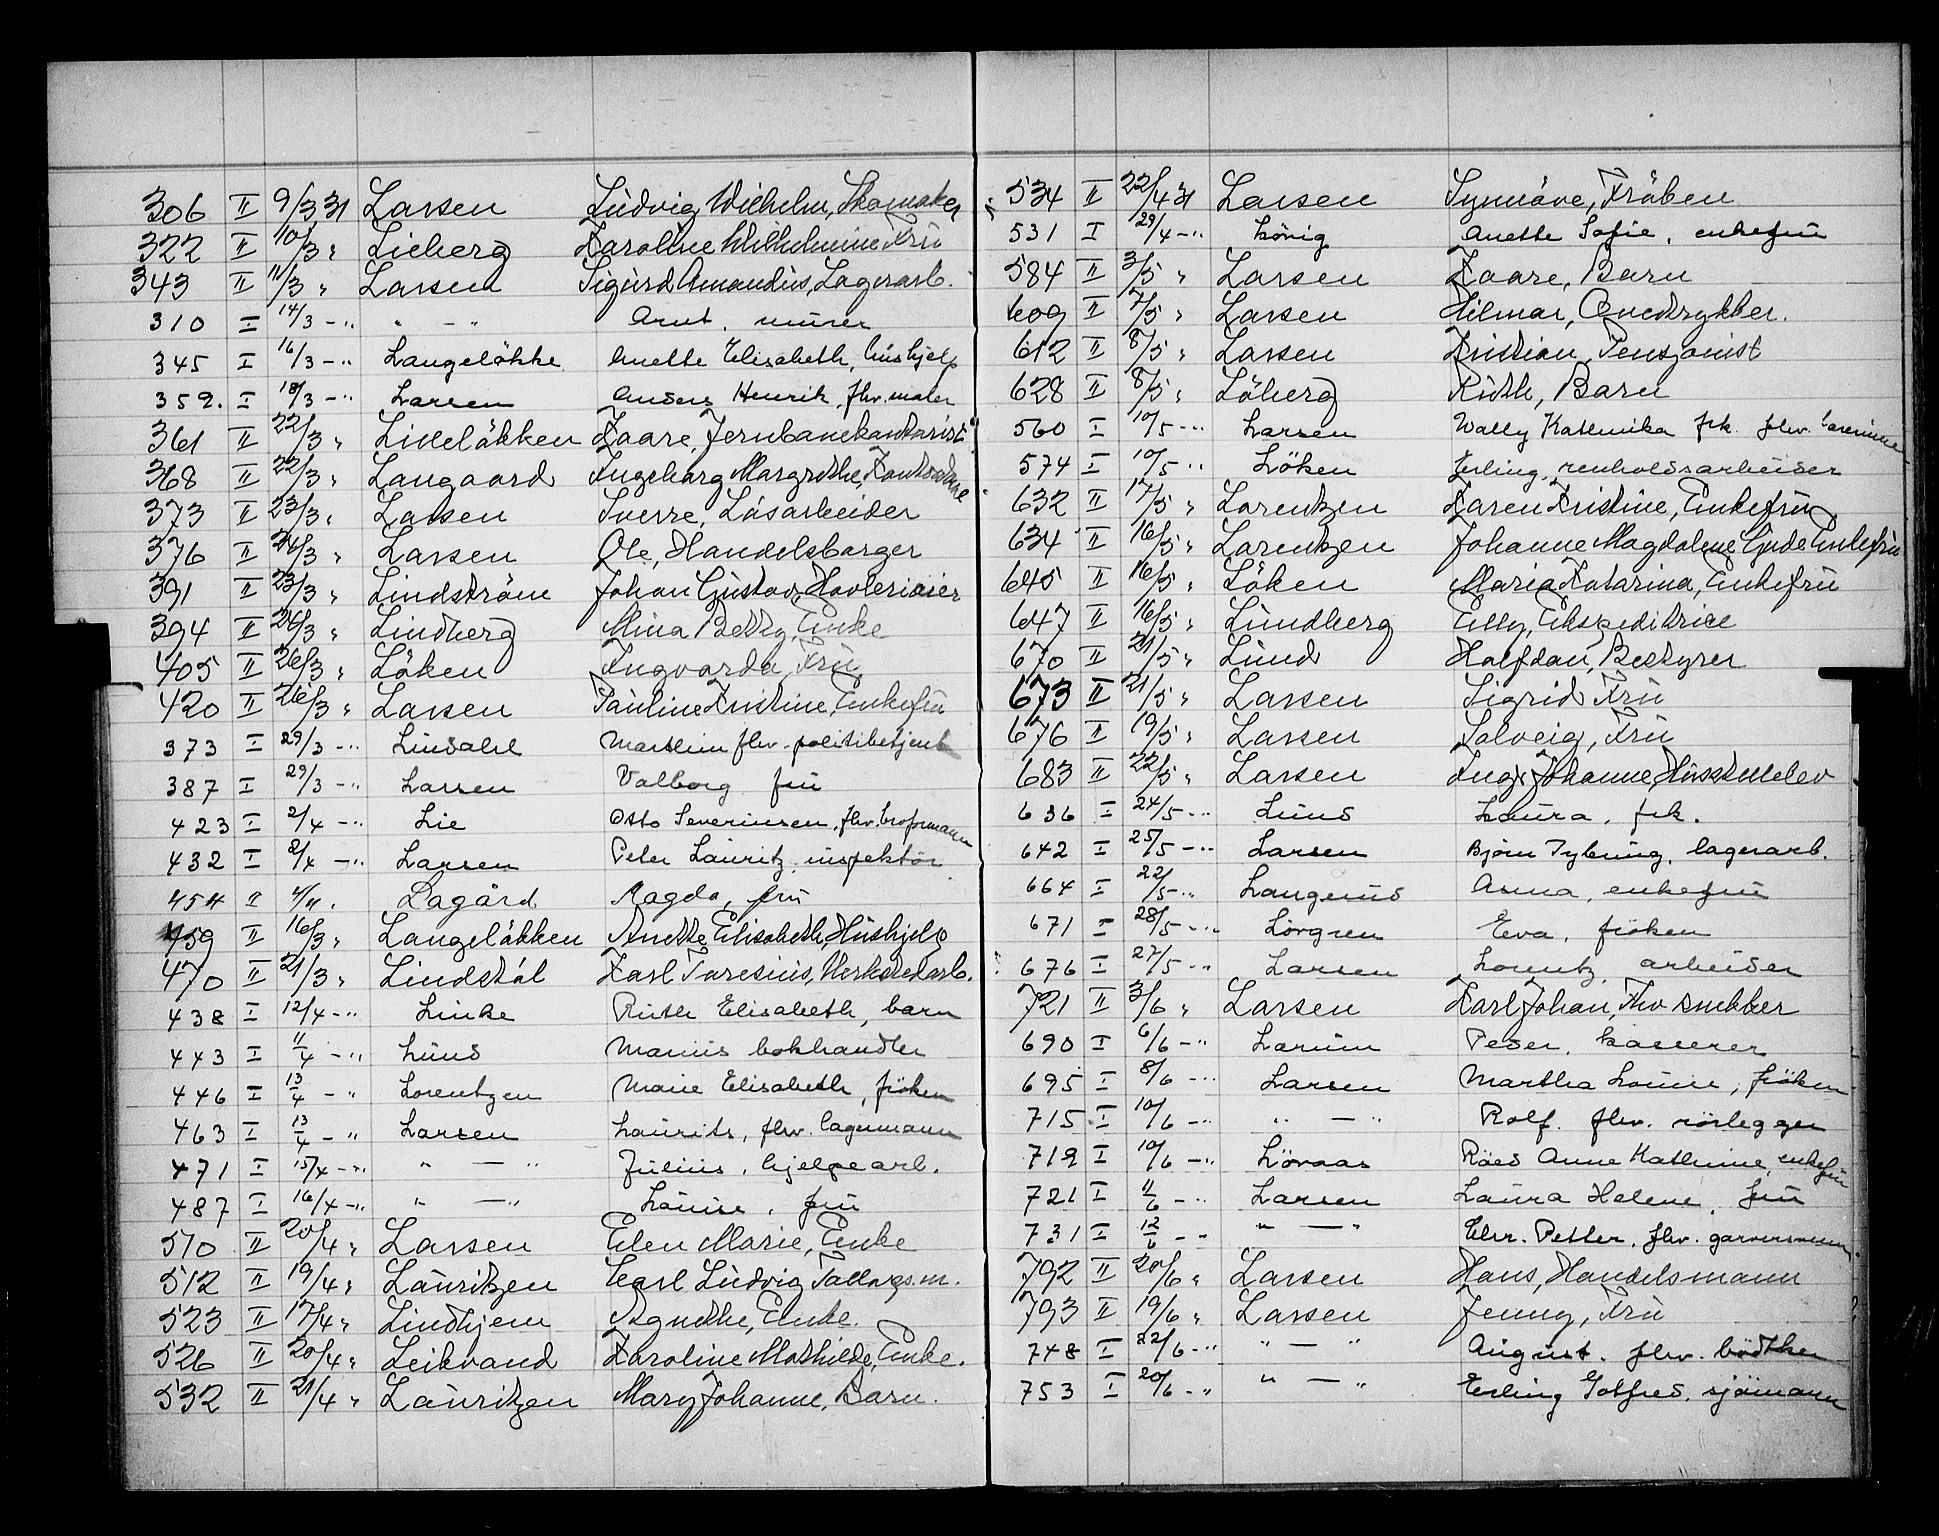 306 II 9/3 31 Larsen Ludvig Wilhelm, Skomaker
322 II 10/3 " Lieberg Karoline Wilhelmine Fru
343 II 11/3 " Larsen Sigurd Amandus, Lagerarb.
310 I 14/3 -" " - " Arnt, murer
345 I 16/3 -" Langeløkke Anette Elisabeth, hushjelp
359. I 18/3 -" Larsen Anders Henrik, fhv. maler
361 II 22/3 " Lilleløkken Kaare, Jernbanekontorist
368 II 22/3 " Langaard Ingeborg Margrethe, Kontordame
373 II 23/3 " Larsen Sverre, Løsarbeider
376 II 24/3 " Larsen Ole, Handelsborger
391 II 23/3 " Lindstrøm Johan Gustav,
394 II 24/3 " Lindberg Mina Betty, Enke
405 II 26/3 " Løken Ingvarda, Fru
420 II 26/3 " Larsen Pauline Kristine, Enkefru
373 I 29/3 -" Lindahl Marthin fhv. politibetjent
387 I 29/3 -" Larsen Valborg fru
423 I 2/4 -" Lie Otto Severinsen, fhv. broformann
432 I 2/4 -" Larsen Peter Lauritz, inspektør
454 II 4/4. Lagård Magda, fru
459 II 16/3 " Langeløkken Anette Elisabeth, Hushjelp
470 II 21/3 " Lindstøl Karl Taresius, Verkstedarb.
438 I 12/4 -" Linke Ruth Elisabeth, barn
443 I 11/4 -" Lund Marius bokhandler
446 I 13/4 - " Lorentzen Marie Elisabeth, frøken
463 I 13/4 - " Larsen Laurits, fhv. lagermann
471 I 15/4 -" " — " Julius, hjelpearb.
487 I 16/4 -" " — " Louise, fru
510 II 20/4 " Larsen Elen Marie, Enke
512 II 19/4 " Lauritzen Carl Ludvig Tallags.m.
523 II 17/4 " Lindhjem Agnethe, Enke.
526 II 20/4 " Leikvand Karoline Mathilde, Enke.
532 II 21/4 " Lauritzen Mary Johanne, Barn.
534 II 22/4 31 Larsen Synnøve, Frøken
531 I 29/4 -" Lövig Anette Sofie, enkefru
584 II 3/5 " Larsen Kaare, Barn
609 II 7/5 " Larsen Hilmar,
612 II 8/5 " Larsen Kristian, Pensjonist
628 II 8/5 " Løberg Ruth, Barn
560 I 10/5 -" Larsen Wally Kathinka frk. fhv. lærerinne
574 I 10/5 " Löken Erling, renholdsarbeider
632 II 17/5 " Lorentzen Karen Kristine, Enkefru
634 II 16/5 " Lorentzen Johanne Magdalene Gude Enkefru
645 II 16/5 " Løken Maria Katarina, Enkefru
647 II 16/5 " Lundberg Elly, Ekspeditrice
670 II 21/5 " Lund Halfdan, Bestyrer
673 II 21/5 " Larsen Sigrid Fru
676 II 19/5 " Larsen Solveig, Fru
683 II 22/5 " Larsen Inga Johanne, Husstellelev
636 I 24/5 -" Lund Laura, frk.
642 I 25/5 -" Larsen Bjørn Tybring, lagerarb.
664 I 22/5 -" Langerud Anna, enkefru
671 I 28/5 -" Lövgren Eva, frøken
676 I 27/5 -" Larsen Lorentz, arbeider
721 II 3/6 " Larsen Karl Johan, Fhv snekker
690 I 6/6 -" Larum Peder, kasserer
695 I 8/6 -" Larsen Martha Louise, frøken
715 I 10/6 -" " — " Rolf. fhv. rørlegger
719 I 10/6 -" Lövaas Røed Anne Kathrine, enkefru
721 I 11/6 -" Larsen Laura Helene, fru
731 I 12/6 -" " — " Chr. Petter, fhv. garversvenn.
792 II 20/6 " Larsen Hans, Handelsmann
793 II 19/6 " Larsen Jenny, Fru
748 I 22/6 -" " — " August. fhv. bødtker
753 I 20/6 -" " — " Erling Gotfred, sjømann